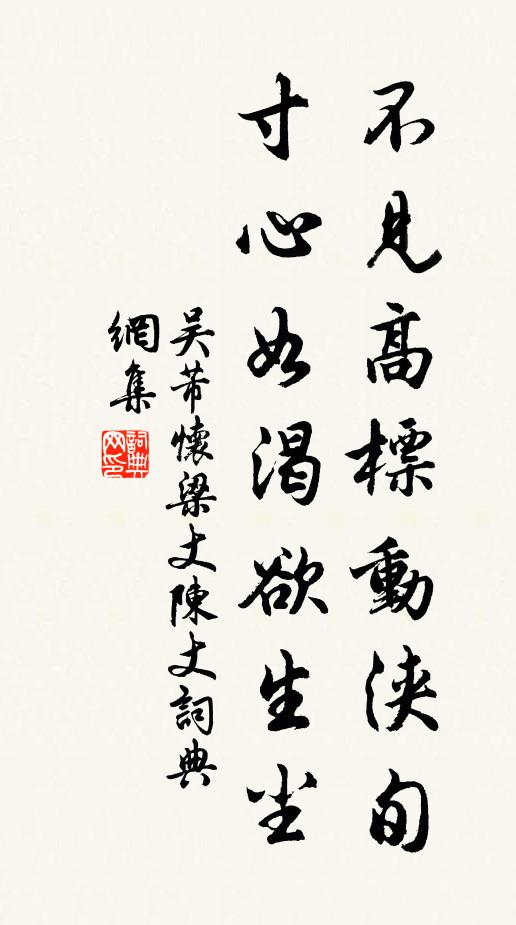 不見高標動浹旬
寸心如渴欲生尘
吳芾懷梁丈陳丈詞典
網集
詞典
网印